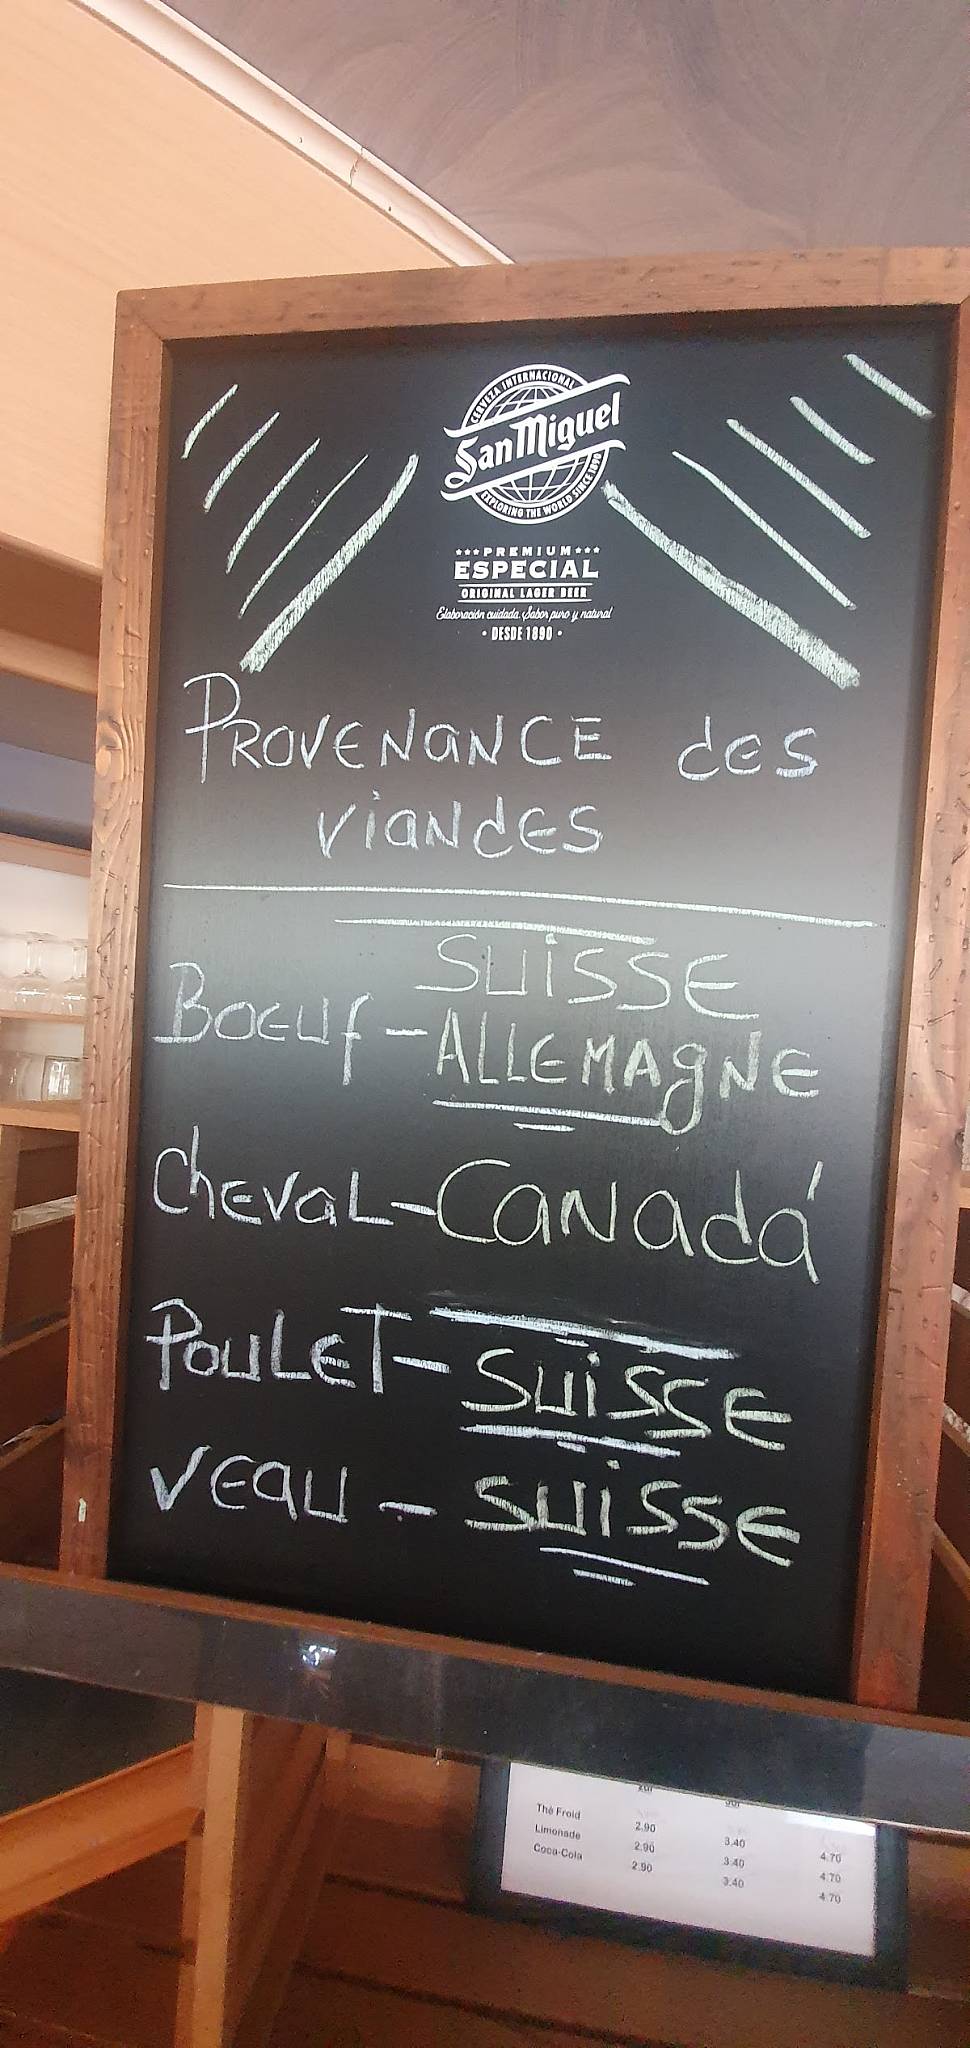 CERVEZA INTERNACIONAL
San Miguel
EXPLORING THE WORLD SINCE 1890
PREMIUM
ESPECIAL
ORIGINAL LAGER BEER
Elaboración cuidada. Sabor puro y natural
· DESDE 1890 ·
PROVENANCE des
viandes
SUISSE
Boeuf - ALLEMAgNE
Cheval - Canadá
Poulet - SUISSE
Veau - SUISSE
2dl 3dl
Thé Froid 2.90 3.40 4.70
Limonade 2.90 3.40 4.70
Coca-Cola 2.90 3.40 4.70